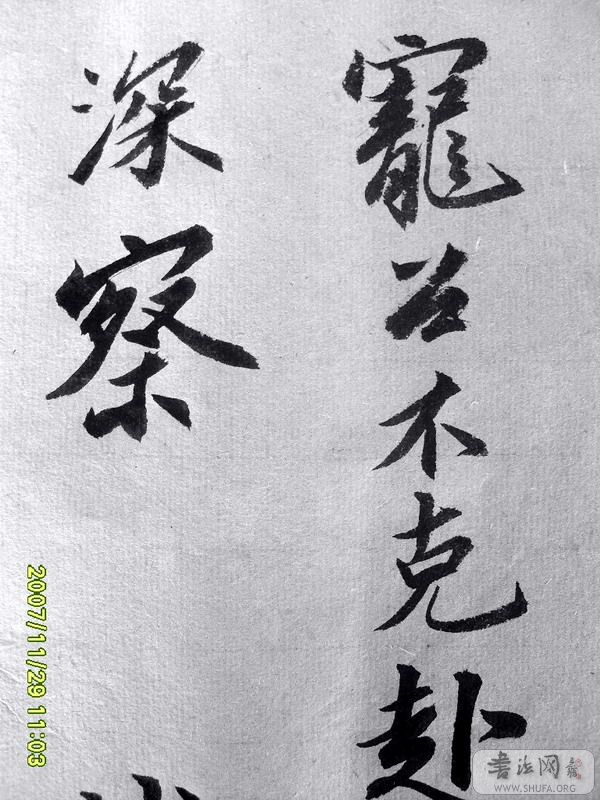 寵召不克赴
深察
2007/11/29 11:03
書法网
WWW.SHUFA.ORG